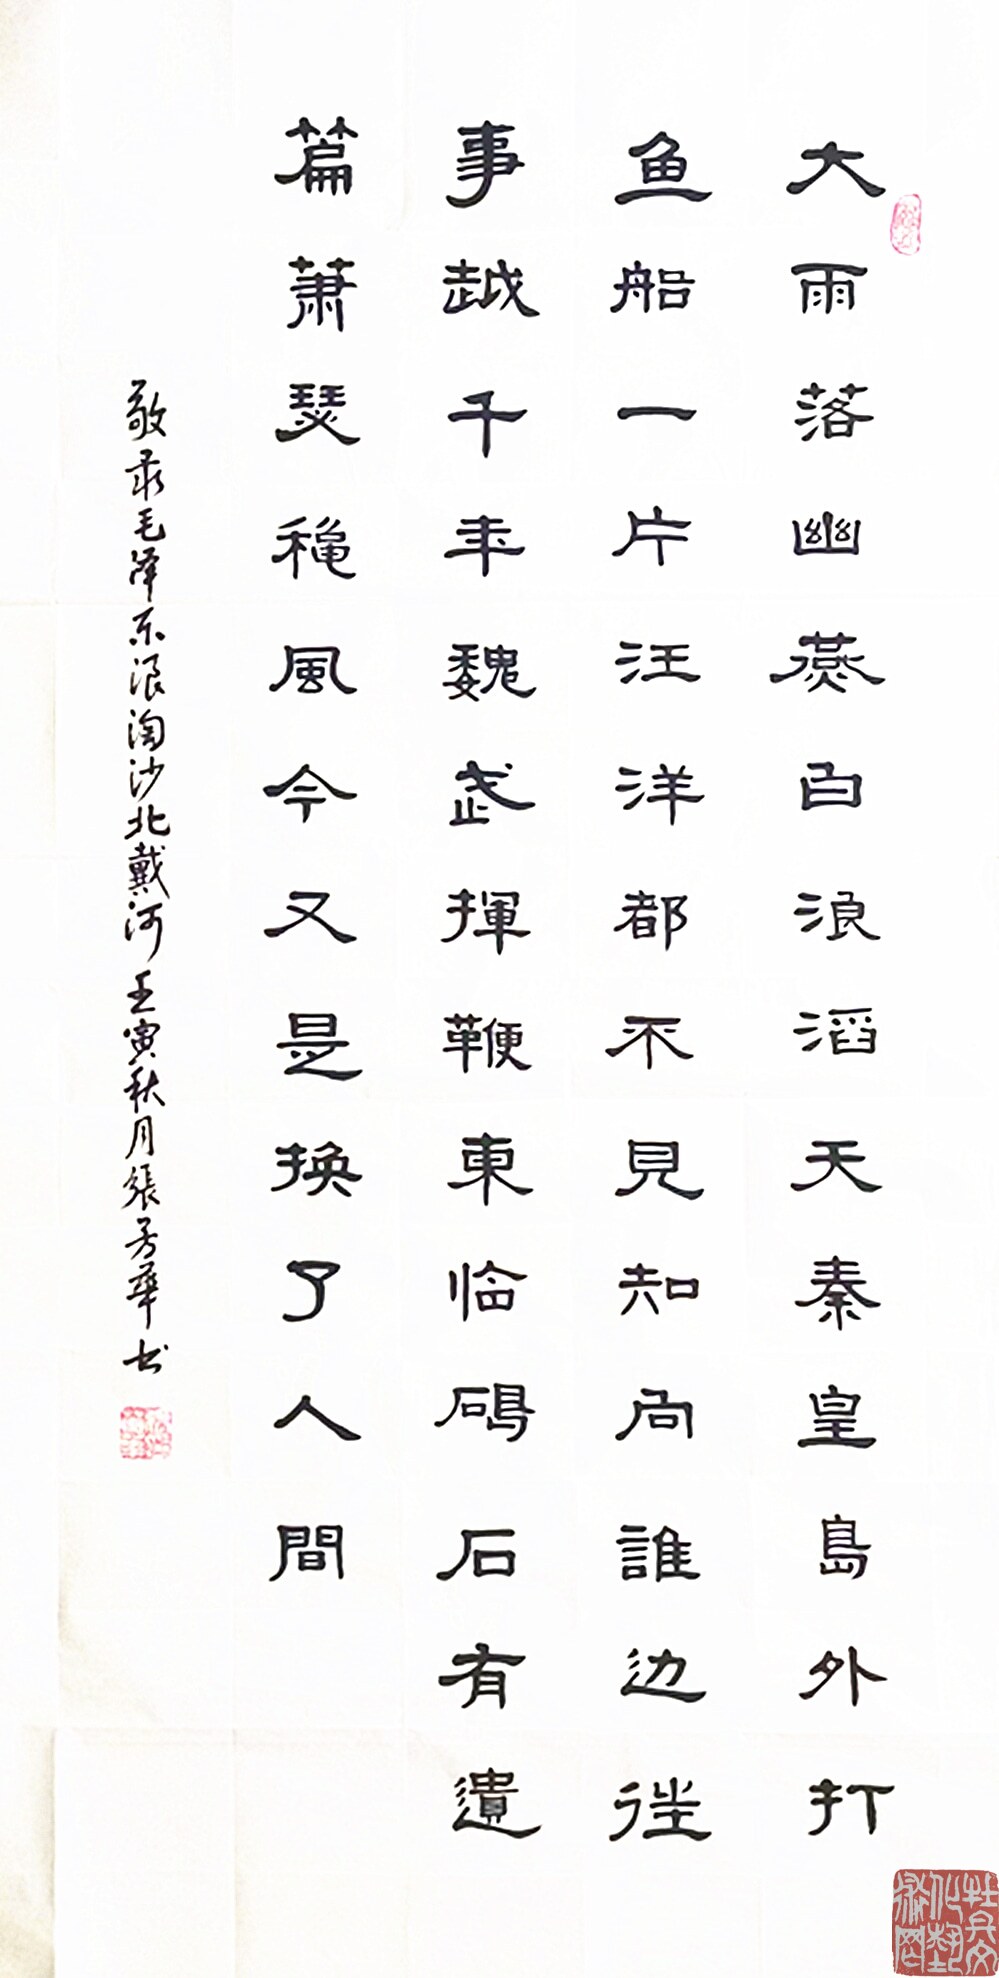 大雨落幽燕白浪滔天秦皇島外打
鱼船一片汪洋都不見知向誰边往
事越千年魏武揮鞭東临碣石有遺
篇蕭瑟穐風今又是换了人間
敬录毛泽东浪淘沙北戴河壬寅秋月張芳華书